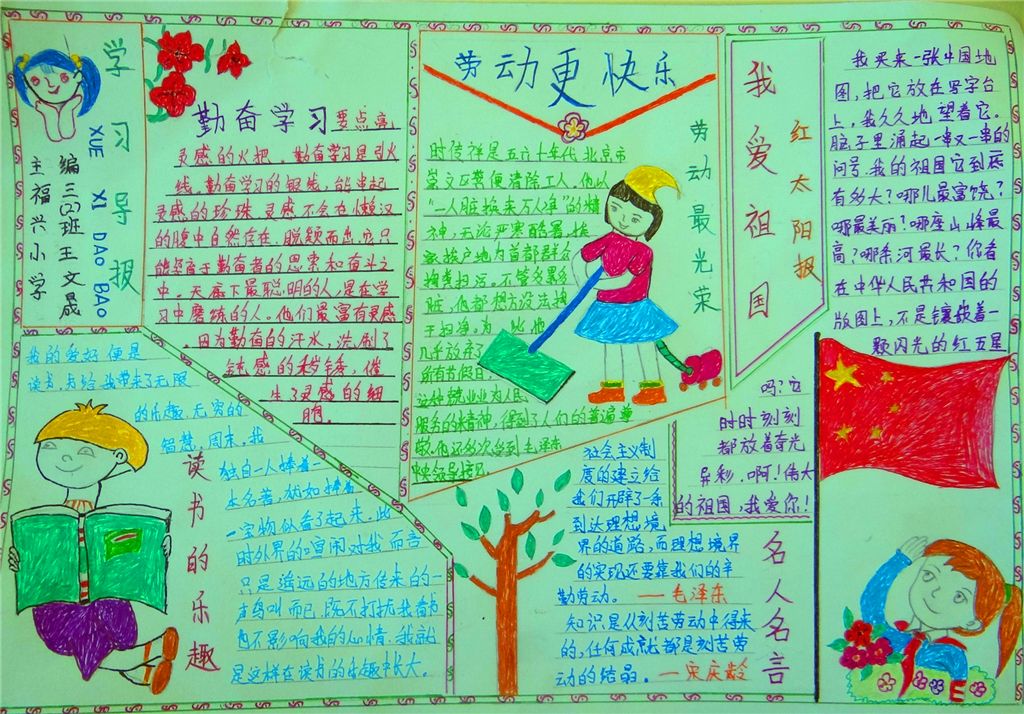 学习导报
XUE XI DAO BAO
主福兴小学
编三(2)班王文晟
勤奋学习
要点亮
灵感的火把。勤奋学习是引火
线。勤奋学习的银线，能串起
灵感的珍珠。灵感不会在懒汉
的腹中自然存在，脱颖而出，它只
能孕育于勤奋者的思索和奋斗之
中。天底下最聪明的人，是在学
习中磨练的人。他们最富有灵感
。因为勤奋的汗水，洗刷了
钝感的秽锈，催
生了灵感的细
胞。
劳动更快乐
劳动最光荣
时传祥是五六十年代北京市
崇文区粪便清除工人。他以
“一人脏换来万人净”的精
神，无论严寒酷暑，挨
家挨户地为首都群众
掏粪扫污。不管多累多
脏，他都想方设法掏
干扫净。为此他
几乎放弃了
所有节假日。
这种兢兢业业为人民
服务的精神，得到了人们的普遍尊
敬。他还多次受到毛泽东
中央领导接见。
我爱祖国
红太阳报
我买来一张中国地
图，把它放在写字台
上，我久久地望着它。
脑子里涌起一串又一串的
问号。我的祖国它到底
有多大？哪儿最富饶？
哪最美丽？哪座山峰最
高？哪条河最长？你看
在中华人民共和国的
版图上，不是镶嵌着一
颗闪光的红五星
吗？它
时时刻刻
都放着奇光
异彩。啊！伟大
的祖国，我爱你！
读书的乐趣
我的爱好便是
读书，书给我带来了无限
的乐趣，无穷的
智慧。周末，我
独自一人捧着一
本名著，犹如捧着
一宝物似看了起来。此
时外界的喧闹对我而言
只是遥远的地方传来的一
声鸟叫而已，既不打扰我看书
也不影响我的心情。我就
是这样在读书的乐趣中长大。
名人名言
社会主义制
度的建立给
我们开辟了一条
到达理想境
界的道路，而理想境界
的实现还要靠我们的辛
勤劳动。 —毛泽东
知识是从刻苦劳动中得来
的，任何成就都是刻苦劳
动的结晶。 —宋庆龄